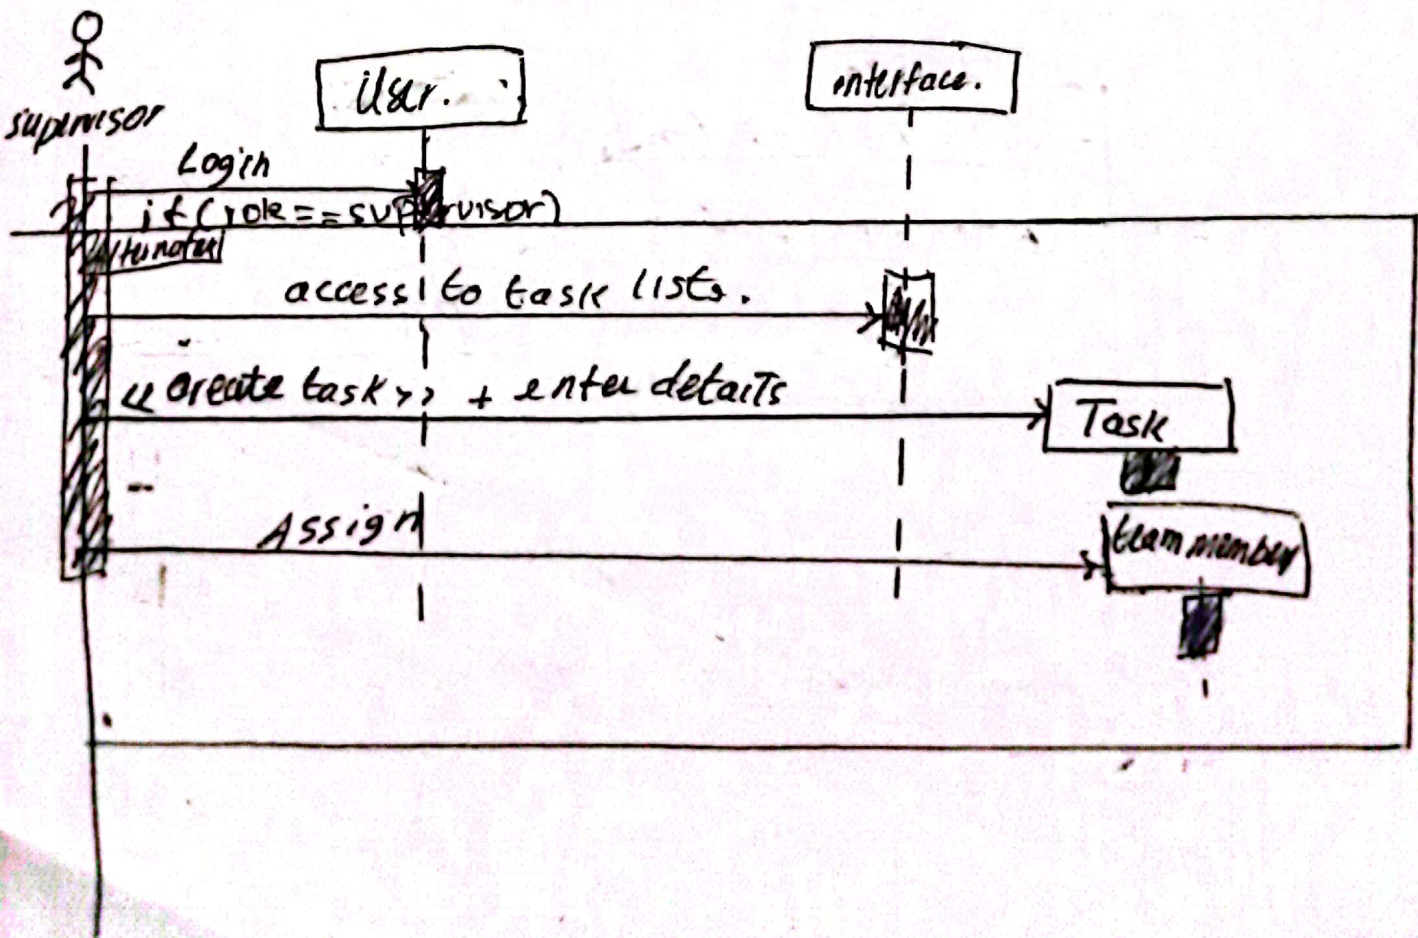 supervisor
User.
interface.
Login
if(role==supervisor)
access to task lists.
<< create task>> + enter details
Task
Assign
team member